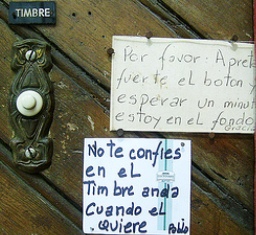 TIMBRE
Por favor: Apreta
fuerte el boton y
esperar un minut
estoy en el fondo
Gracias
No te confies
en el
Timbre anda
Cuando el
quiere Pablo